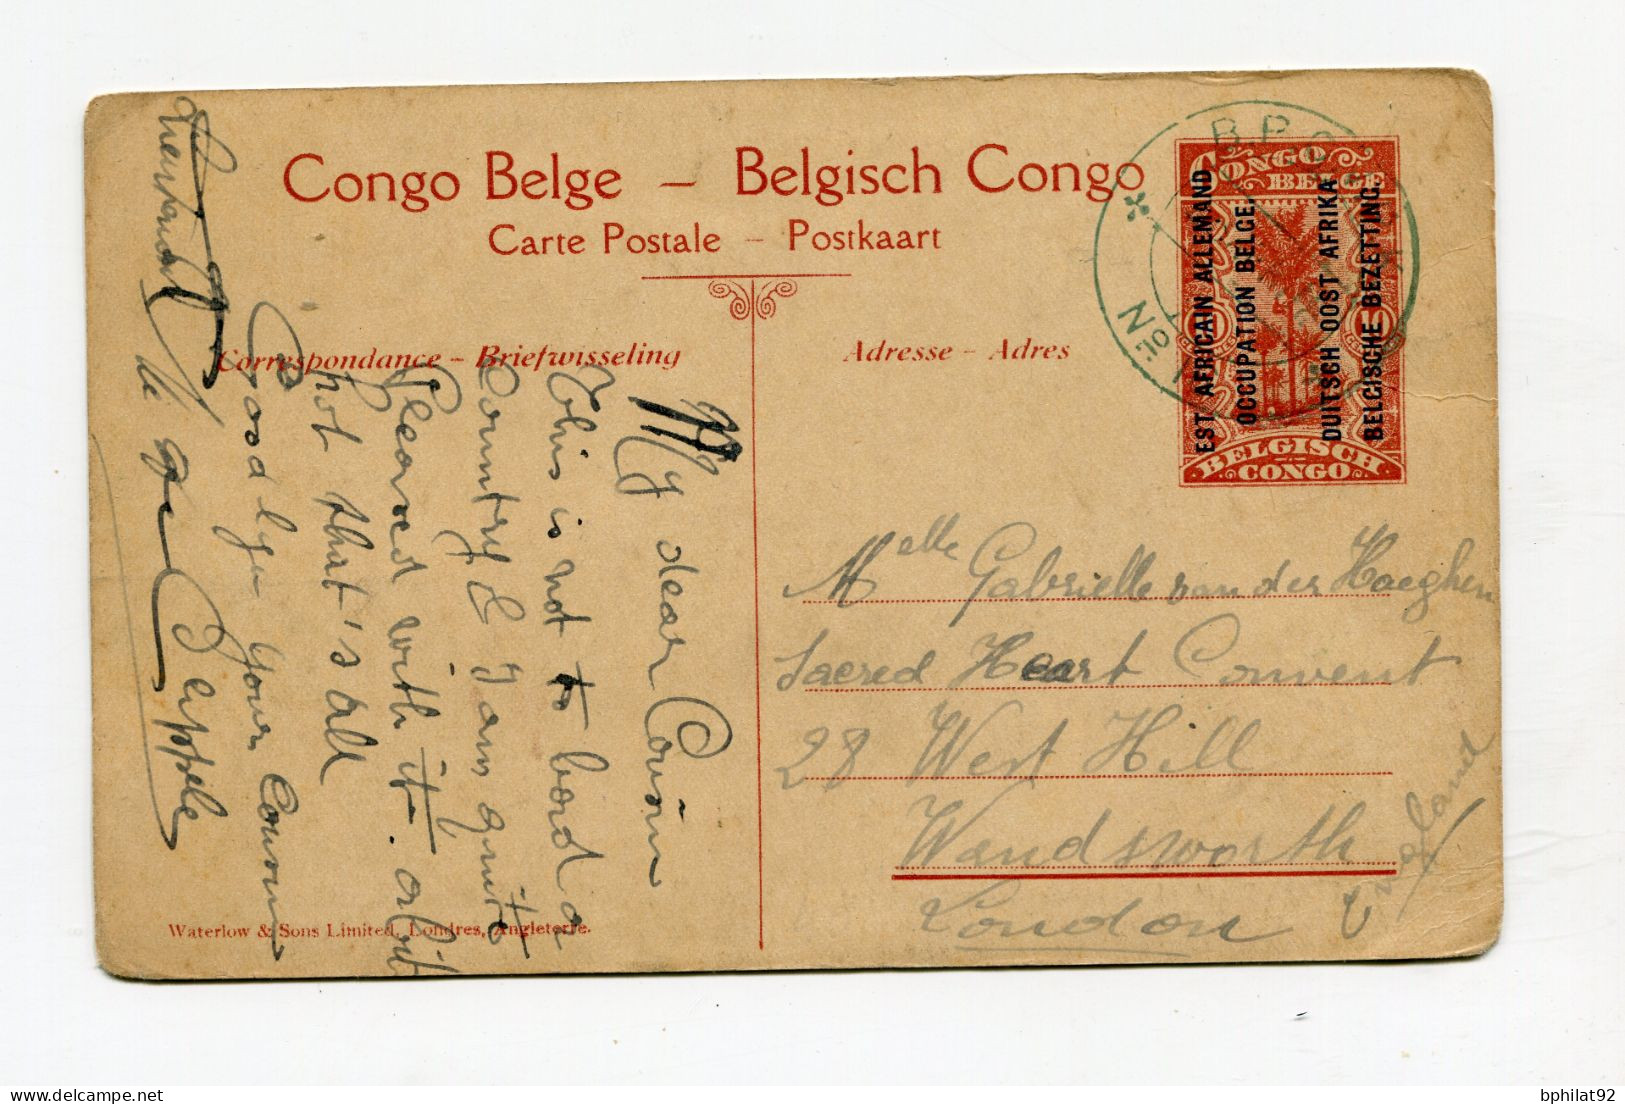 Congo Belge – Belgisch Congo
Carte Postale – Postkaart
Correspondance – Briefwisseling
Adresse – Adres
CONGO
BELGE
EST. AFRICAIN ALLEMAND
OCCUPATION BELGE.
DUITSCH OOST AFRIKA
BELGISCHE BEZETTING.
10
BELGISCH
CONGO
B.P.C.
No
My dear Cousin
This is not to bad a
Country & I am quite
pleased with it. a bit
hot that's all
Good bye your Cousin
Lieutenant
Melle Gabrielle van der Haeghen
Sacred Heart Convent
28 West Hill
Wandsworth
London
England
Waterlow & Sons Limited, Londres, Angleterre.
bphilat92